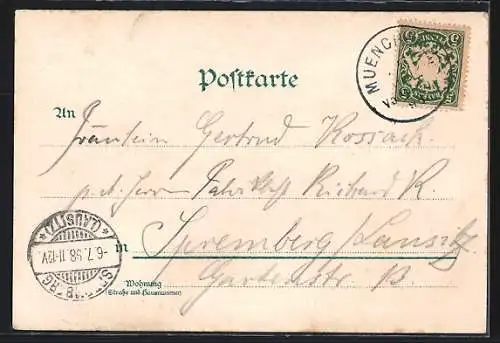 MUENCH
Postkarte
An
Fräulein Gertrud Kossack
p. ad. Herrn Fabrikbes. Richard K.
in Spremberg Lausitz
Gartenstr. 13.
Wohnung
(Straße und Hausnummer)
SPREMBERG
-6.7.98.11-12V.
*(LAUSITZ)*
5 5
5 5